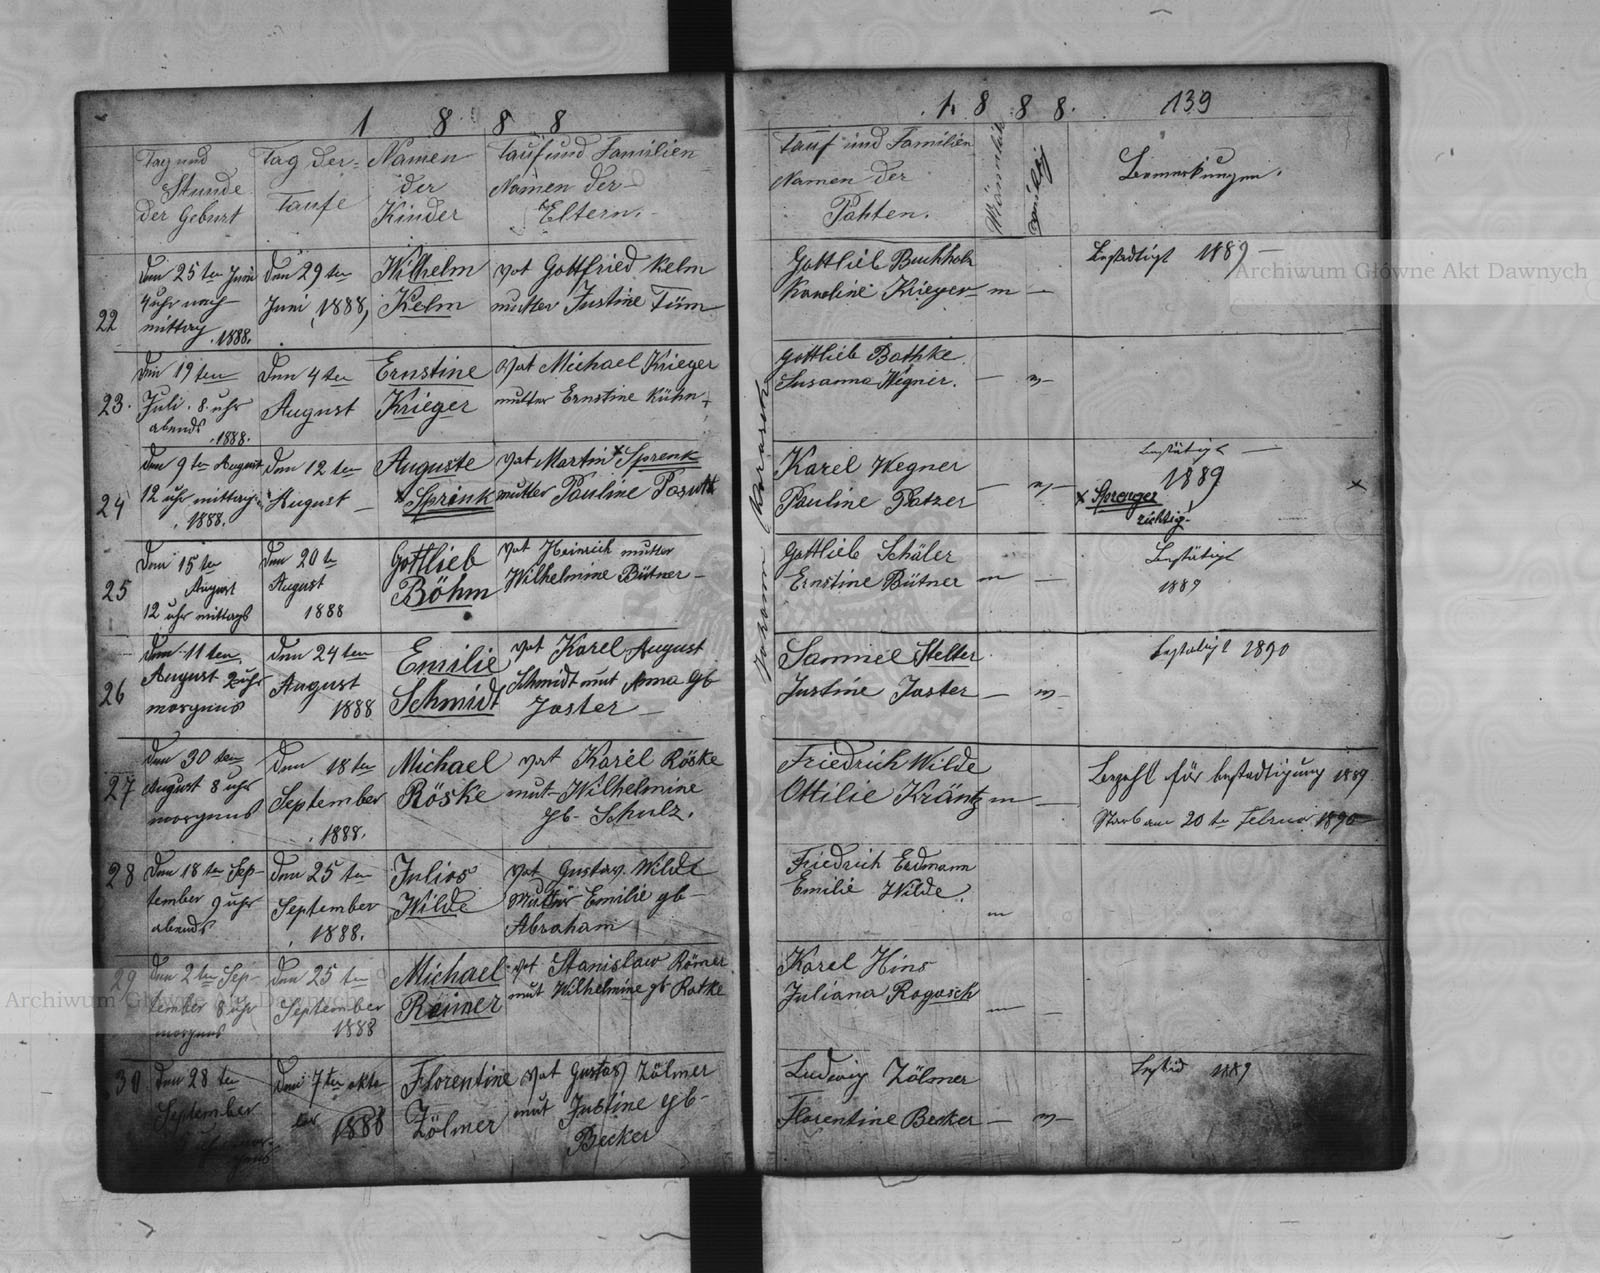 1 8 8 8
Tag und
Stunde
der Geburt
Tag der
Taufe
Namen
der
Kinder
Tauf und Familien
Namen der
Eltern.
22
den 25 ten Juni
4 uhr nach
mittag
1888.
den 29 ten
Juni 1888,
Wilhelm
Kelm
vat Gottfried Kelm
mutter Justine Tim
23.
den 19 ten
Juli. 8. uhr
abends
1888.
den 4 ten
August
Ernstine
Krieger
vat Michael Krieger
mutter Ernstine Kühn
24
den 9 ten August
12 uhr mittag
1888.
den 12 ten
August
Auguste
x Sprenk
vat Martin x Sprenk
mutter Pauline
25
den 15 ten
August
12 uhr mittags
den 20 te
August
1888
Gottlieb
Böhm
vat Heinrich mutter
Wilhelmine Bütner
26
den 11 ten
August 2 uhr
morgens
den 24 ten
August
1888
Emilie
Schmidt
vat Karel August
Schmidt mut Anna gb
Jaster
27
den 30 ten
August 8 uhr
morgens
den 18 ten
September
1888.
Michael
Röske
vat Karel Röske
mut Wilhelmine
gb- Schulz.
28
den 18 ten Sep-
tember 9 uhr
abends
den 25 ten
September
1888.
Julios
Wilde
vat Gustav Wilde
Mutter Emilie gb-
Abraham
29
den 2 ten Sep-
tember 8 uhr
morgens
den 25 te
September
1888
Michael
Reimer
vat Stanislaw Römer
mut Wilhelmine gb Ratke
30
den 28 ten
September
den 7 ten okto
ber 1888
Florentine
Zölmer
vat Gustav Zölmer
mut Justine gb-
Becker
1. 8 8 8. 139
Tauf und Familien
Namen der
Pahten.
Mänlich
Bemerkungen.
Gottlieb Buchholz
Karoline Krieger m
Bestädtigt 1889
Gottlieb Bathke
Susanna Wegner. m
Karel Wegner
Pauline Patzer m
bestätigt
1889
x Sprenger
richtig.
x
Gottlieb Schäler
Ernstine Bütner m
Bestätigt
1889
Samuel Stelter
Justine Jaster m
bestätigt 1890
Friedrich Wilde
Ottilie Kräntz m
Bezahlt für bestadtigung 1889
Starb am 20 te Februar 1890
Friedrich Erdmann
Emilie Wilde. m
Karel Hins
Juliana Rogasch m
Ludwig Zölmer
Florentine Becker m
1889
Johann
Archiwum Główne Akt Dawnych
Archiwum Główne Akt Dawnych